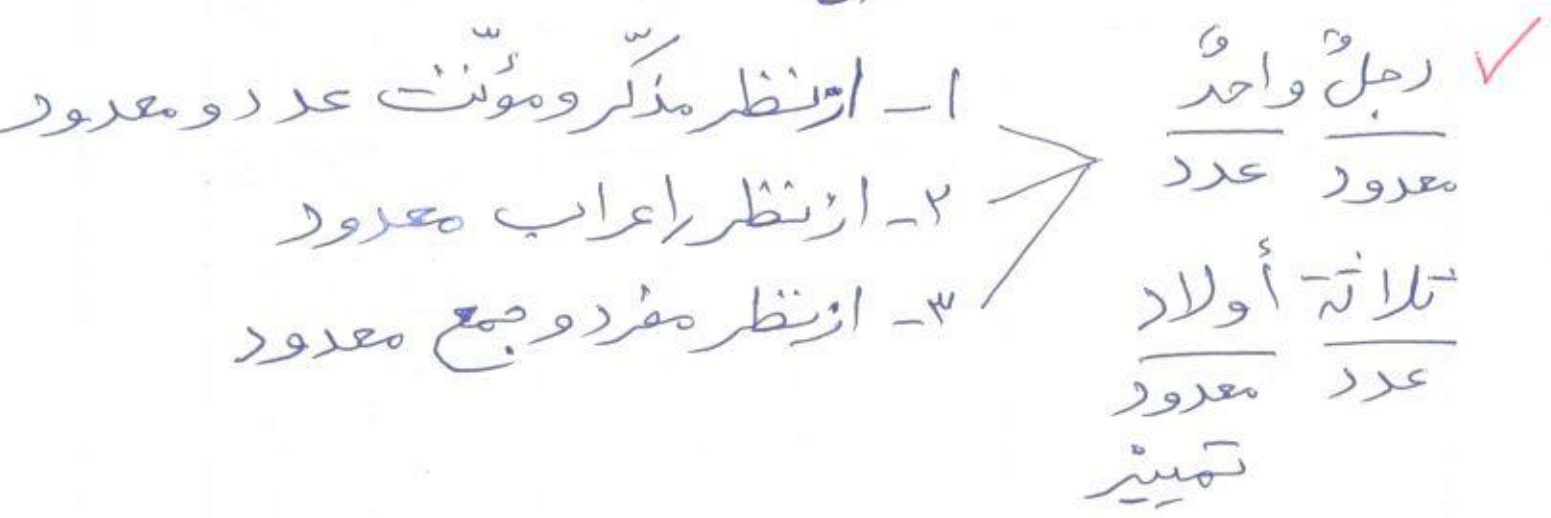 رجلٌ واحدٌ
معدود عدد
ثلاثة أولاد
عدد معدود
تمییز
۱- از نظر مذکّر و مؤنّث عدد و معدود
۲- از نظر اعراب معدود
۳- از نظر مفرد و جمع معدود